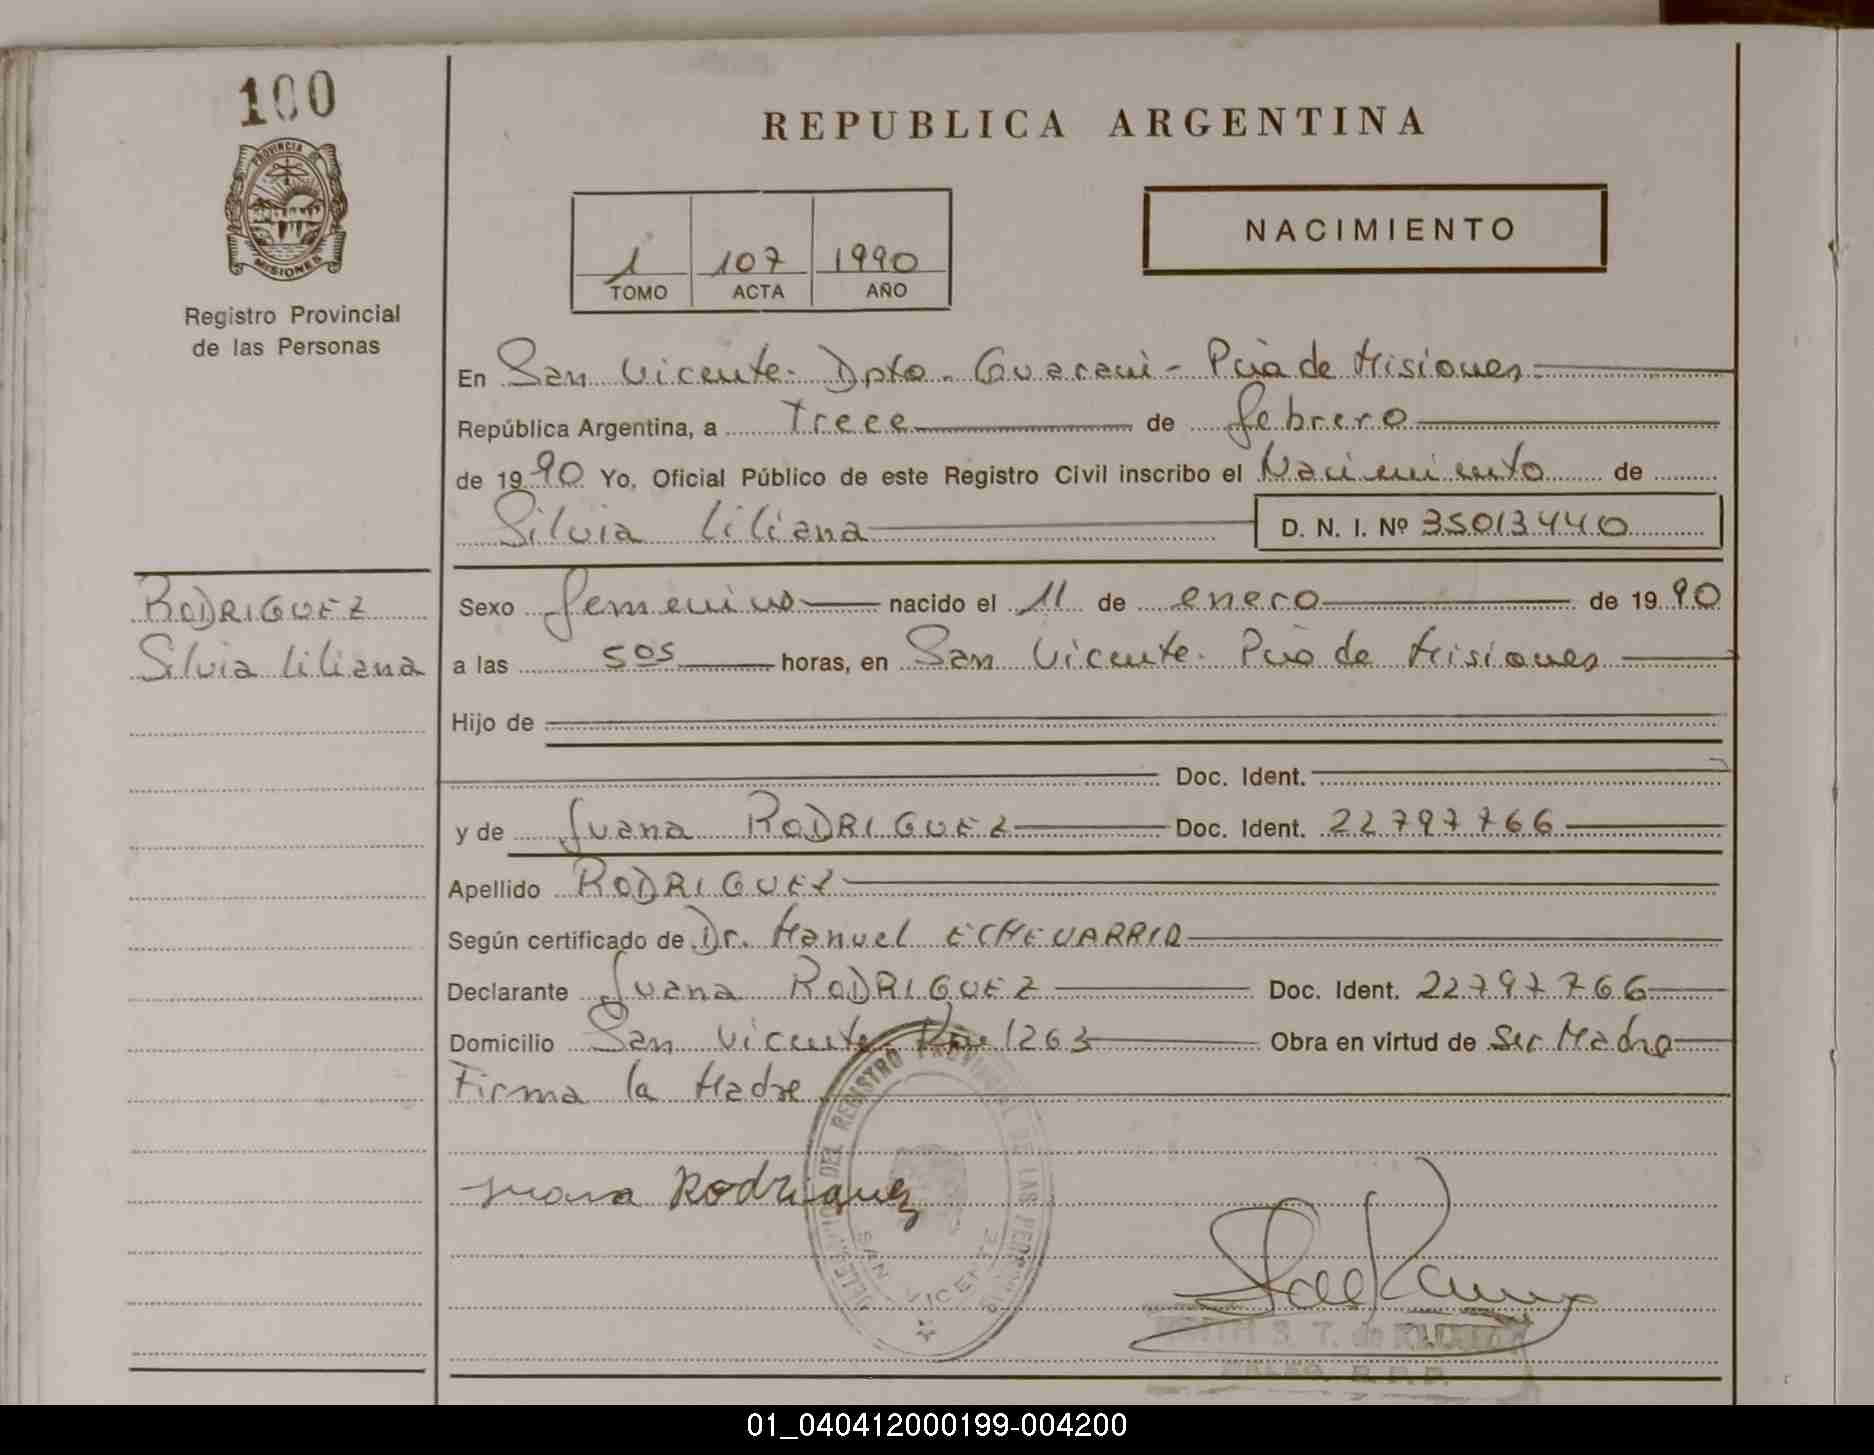 100
PROVINCIA DE
MISIONES
Registro Provincial
de las Personas
REPUBLICA ARGENTINA
1 107 1990
TOMO ACTA AÑO
NACIMIENTO
En San Vicente. Dpto. Guarani - Pcia de Misiones.
República Argentina, a Trece de febrero
de 1990 Yo, Oficial Público de este Registro Civil inscribo el Nacimiento de
Silvia Liliana D. N. I. Nº 35013440
RODRIGUEZ
Silvia Liliana
Sexo femenino nacido el 11 de enero de 1990
a las 5 05 horas, en San Vicente. Pcia de Misiones
Hijo de
Doc. Ident.
y de Juana RODRIGUEZ Doc. Ident. 22797766
Apellido RODRIGUEZ
Según certificado de Dr. Manuel ECHEVARRIA
Declarante Juana RODRIGUEZ Doc. Ident. 22797766
Domicilio San Vicente Km 1263 Obra en virtud de Ser Madre
Firma la Madre
Juana Rodriguez
DEL REGISTRO PROVINCIAL DE LAS PERSONAS
SAN VICENTE
S. T. de
R. P. P.
01_040412000199-004200